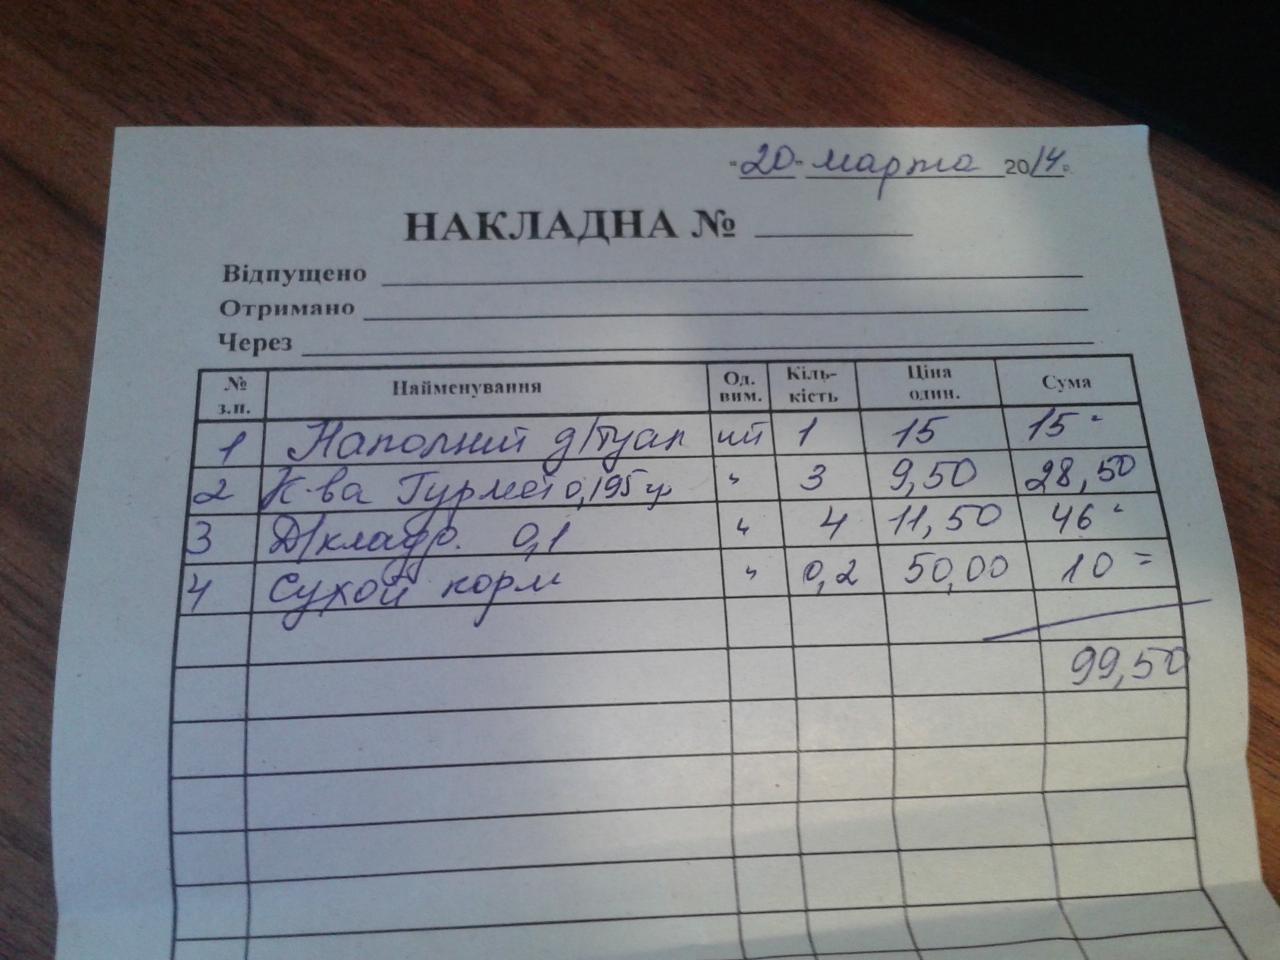 "20" марта 2014г.
НАКЛАДНА №
Відпущено
Отримано
Через
№ з.п. Найменування Од. вим. Кіль-кість Ціна один. Сума
1 Наполний д/туал шт 1 15 15-
2 К-ва Гурмет 0,195 гр " 3 9,50 28,50
3 Д/кладр. 0,1 " 4 11,50 46-
4 Сухой корм " 0,2 50,00 10=
99,50